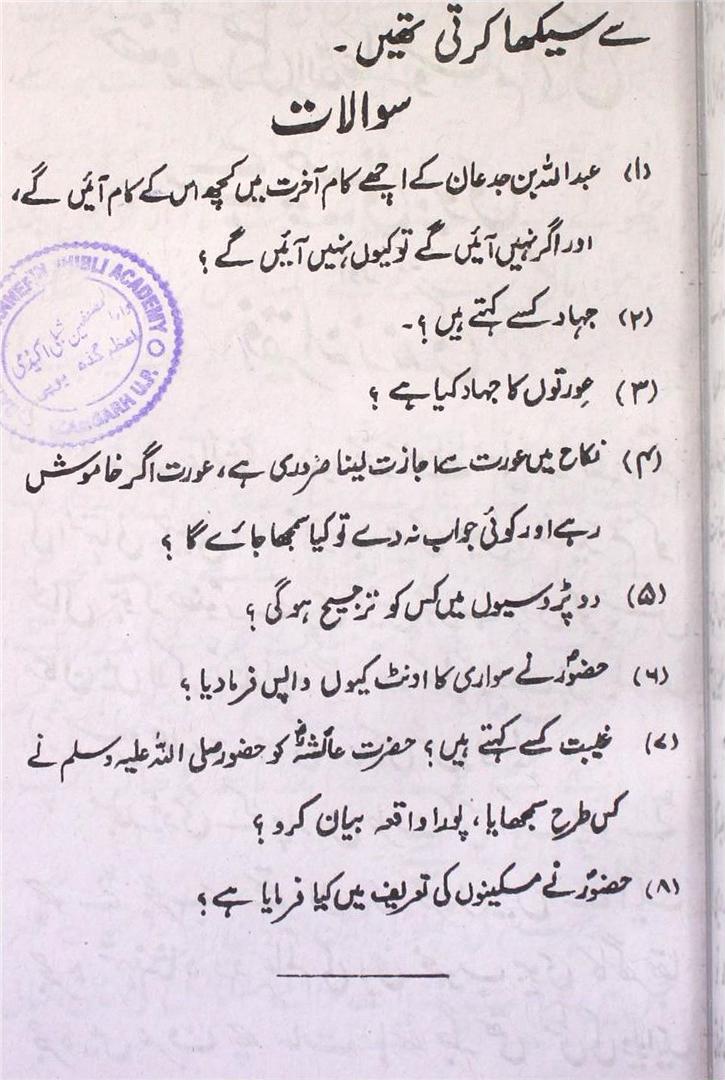 سے سیکھا کرتی تھیں۔
سوالات
(۱) عبداللہ بن جدعان کے اچھے کام آخرت میں کچھ اس کے کام آئیں گے،
اور اگر نہیں آئیں گے تو کیوں نہیں آئیں گے ؟
(۲) جہاد کسے کہتے ہیں ؟۔
(۳) عورتوں کا جہاد کیا ہے ؟
(۴) نکاح میں عورت سے اجازت لینا ضروری ہے، عورت اگر خاموش
رہے اور کوئی جواب نہ دے تو کیا سمجھا جائے گا ؟
(۵) دو پڑوسیوں میں کس کو ترجیح ہوگی ؟
(۶) حضورؐ نے سواری کا اونٹ کیوں واپس فرمادیا ؟
(۷) غیبت کسے کہتے ہیں ؟ حضرت عائشہؓ کو حضور صلی اللہ علیہ وسلم نے
کس طرح سمجھایا، پورا واقعہ بیان کرو ؟
(۸) حضورؐ نے مسکینوں کی تعریف میں کیا فرمایا ہے ؟
SHIBLI ACADEMY
دارالمصنفین شبلی اکیڈمی
اعظم گڈھ یوپی
AZAMGARH U.P.